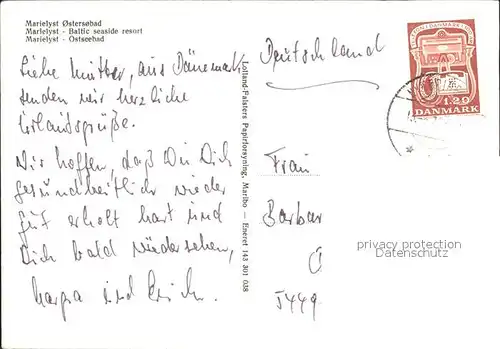 Marielyst Østersøbad
Marielyst - Baltic seaside resort
Marielyst - Ostseebad
Liebe Mutter, aus Dänemark
senden wir herzliche
Urlaubsgrüße.
Wir hoffen, daß Du Dich
gesundheitlich wieder
gut erholt hast und
Dich bald wiedersehen,
und Erich.
Lolland-Falsters Papirforsyning, Maribo - Eneret 143 301 038
Deutschland
1.20
DANMARK
Frau
Barbar
privacy protection
Datenschutz